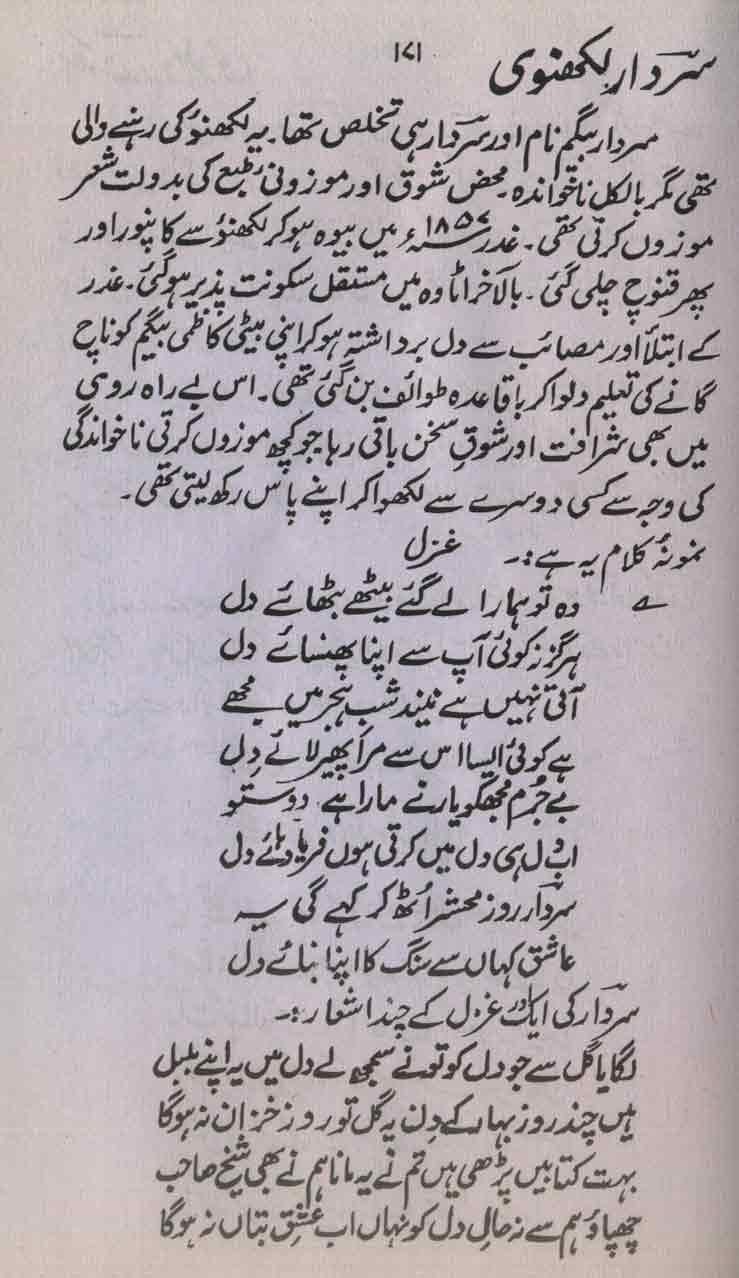 ۱۷۱
سردار لکھنوی
سردار بیگم نام اور سردار ہی تخلص تھا۔ یہ لکھنؤ کی رہنے والی
تھی مگر بالکل ناخواندہ۔ محض شوق اور موزونیٔ طبع کی بدولت شعر
موزوں کرتی تھی۔ غدر ۱۸۵۷ء میں بیوہ ہو کر لکھنؤ سے کانپور اور
پھر قنوج چلی گئی۔ بالآخر اٹاوہ میں مستقل سکونت پذیر ہو گئی۔ غدر
کے ابتلأ اور مصائب سے دل برداشتہ ہو کر اپنی بیٹی کاظمی بیگم کو ناچ
گانے کی تعلیم دلوا کر باقاعدہ طوائف بن گئی تھی۔ اس بے راہ روی
میں بھی شرافت اور شوقِ سخن باقی رہا جو کچھ موزوں کرتی ناخواندگی
کی وجہ سے کسی دوسرے سے لکھوا کر اپنے پاس رکھ لیتی تھی۔
نمونۂ کلام یہ ہے:۔ غزل
؎ وہ تو ہمارا لے گئے بیٹھے بٹھائے دل
ہرگز نہ کوئی آپ سے اپنا پھنسائے دل
آتی نہیں ہے نیند شب ہجر میں مجھے
ہے کوئی ایسا اس سے مرا پھیر لائے دل
بے جُرم مجھکو یار نے مارا ہے دوستو
اب دل ہی دل میں کرتی ہوں فریاد ہائے دل
سردار روز محشر اُٹھ کر کہے گی یہ
عاشق کہاں سے سنگ کا اپنا بنائے دل
سردار کی ایک اور غزل کے چند اشعار:۔
لگایا گل سے جو دل کو تو نے سمجھ لے دل میں یہ اپنے بلبل
ہیں چند روز بہار کے دن یہ گل تو روز خزان نہ ہوگا
بہت کتابیں پڑھی ہیں تم نے یہ مانا ہم نے بھی شیخ صاحب
چھپاؤ ہم سے نہ حالِ دل کو نہاں اب عشق بتاں نہ ہوگا